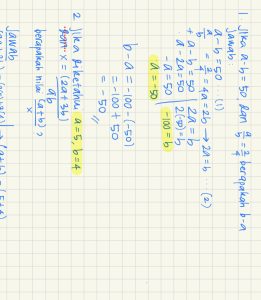 1. Jika a-b = 50, dan a/b = 2/4 berapakah b-a
Jawab:
a-b = 50 ... (1)
a/b = 2/4 = 4a = 2b → 2a = b ... (2)
+ a - b = 50
a - 2a = 50
-a = 50
a = -50
2a = b
2(-50) = b
-100 = b
b-a = -100 - (-50)
= -100 + 50
= -50 //
2. Jika diketahui a = 5, b = 4
x = (2a+3b)
ab
berapakah nilai (a+b)
x
Jawab